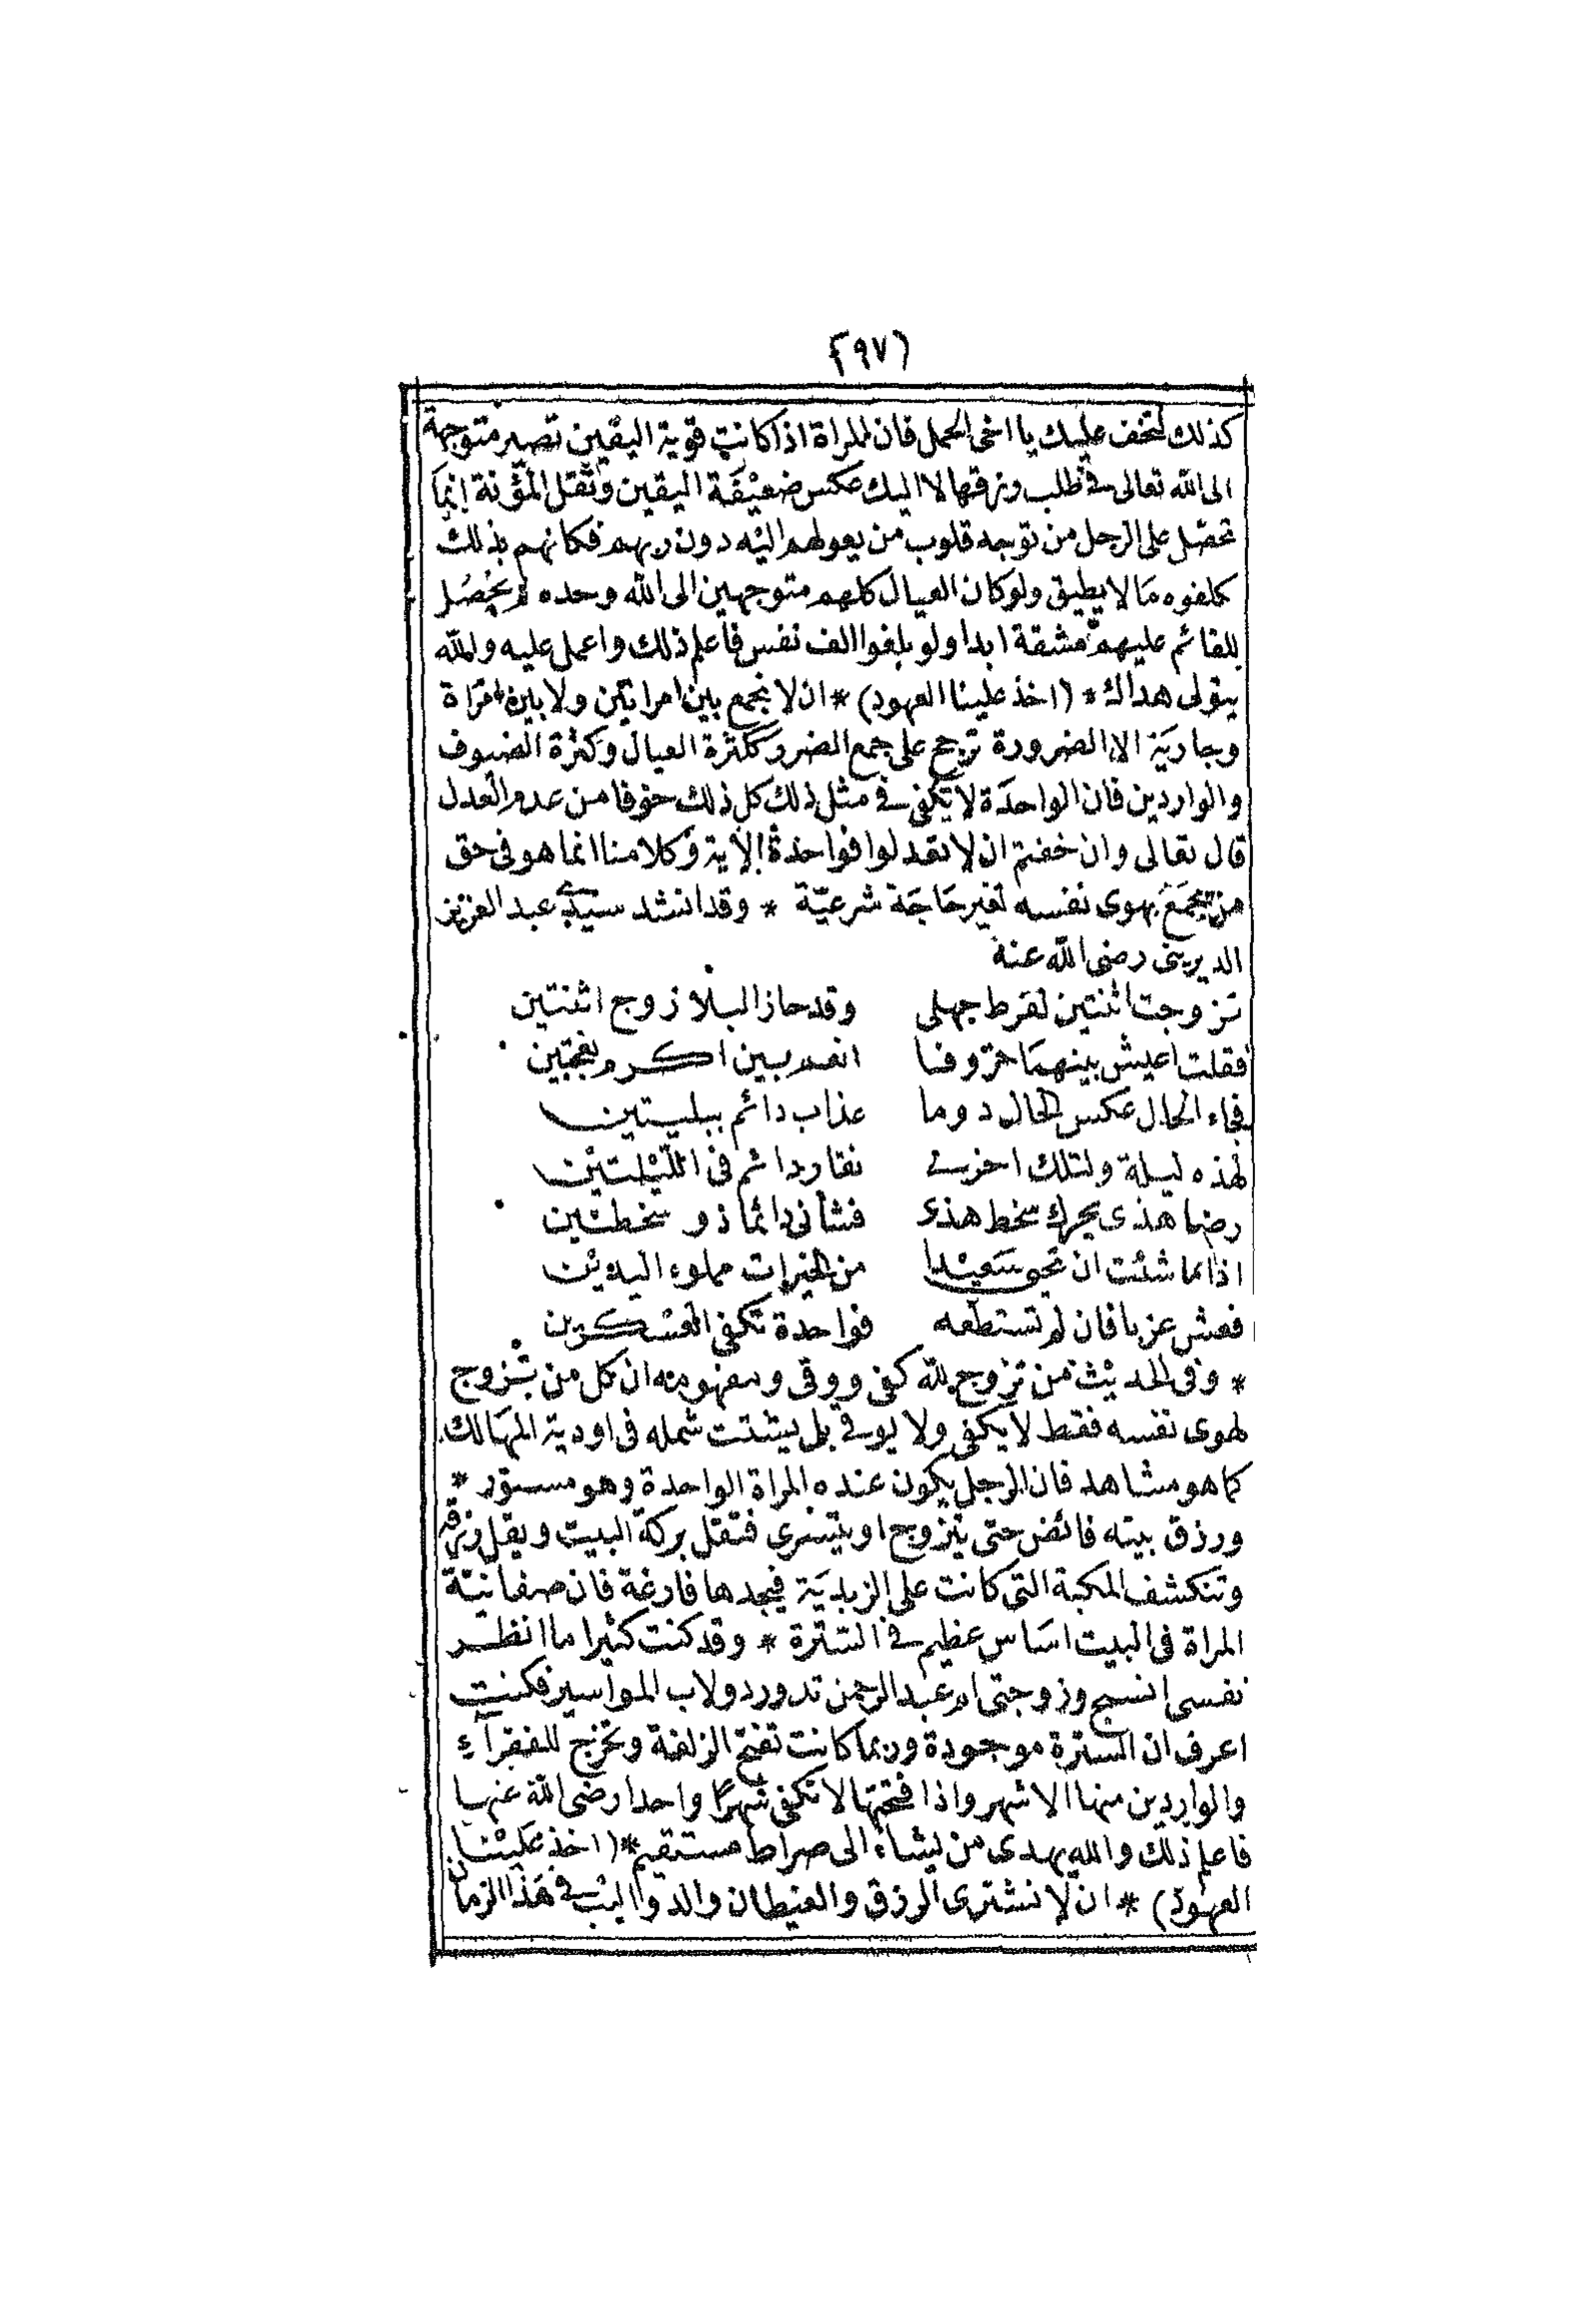 (٩٧)
كذلك لتخف عليك يا اخى الحمل فان المراة اذا كانت قوية اليقين تصير متوجهة
الى الله تعالى فى طلب رزقها لا اليك عكس ضعيفة اليقين وثقل المؤنة انما
تحصل على الرجل من توجه قلوب من يعولهم اليه دون ربهم فكانهم بذلك
كلفوه ما لا يطيق ولو كان العيال كلهم متوجهين الى الله وحده لم يحصل
للقائم عليهم مشقة ابدا ولو بلغوا الف نفس فاعلم ذلك واعمل عليه والله
يتولى هداك * (اخذ علينا العهود) * ان لا نجمع بين امراتين ولا بين امراة
وجارية الا الضرورة ترجح على جمع الضرر ككثرة العيال وكثرة الضيوف
والواردين فان الواحدة لا تكفى فى مثل ذلك كل ذلك خوفا من عدم العدل
قال تعالى وان خفتم ان لا تعدلوا فواحدة الاية وكلامنا انما هو فى حق
من يجمع بهوى نفسه لغير حاجة شرعية * وقد انشد سيدى عبد العزيز
الديرينى رضى الله عنه
تزوجت اثنتين لفرط جهلى وقد حاز البلا زوج اثنتين
فقلت اعيش بينهما خروفا انعم بين اكرم نعجتين
فجاء الحال عكس الحال دوما عذاب دائم ببليتين
لهذه ليلة ولتلك اخرى نقار دائم فى الليلتين
رضا هذى يحرك سخط هذى فشأنى دائما ذو سخطتين
اذا ما شئت ان تحى سعيدا من الخيرات مملوء اليدين
فعش عزبا فان لم تستطعه فواحدة تكفى العسكرين
* وفى الحديث من تزوج لله كفى ووقى ومفهومه ان كل من تزوج
لهوى نفسه فقط لا يكفى ولا يوقى بل يتشتت شمله فى اودية المهالك
كما هو مشاهد فان الرجل يكون عنده المراة الواحدة وهو مستور *
ورزق بيته فائض حتى يتزوج او يتسرى فتقل بركة البيت ويقل رزقه
وتنكشف المكبة التى كانت على الزبدية فيجدها فارغة فان صفا نية
المراة فى البيت اساس عظيم فى السترة * وقد كنت كثيرا ما انظر
نفسى انسج وزوجتى ام عبد الرحمن تدور دولاب المواسير فكنت
اعرف ان السترة موجودة وربما كانت تفتح الزلفة وتخرج للفقرآء
والواردين منها الاشهر واذا فتحتها لا تكفى شهرا واحدا رضى الله عنها
فاعلم ذلك والله يهدى من يشاء الى صراط مستقيم * (اخذ علينا
العهود) * ان لا نشترى الرزق والغيطان والدواليب فى هذا الزمان